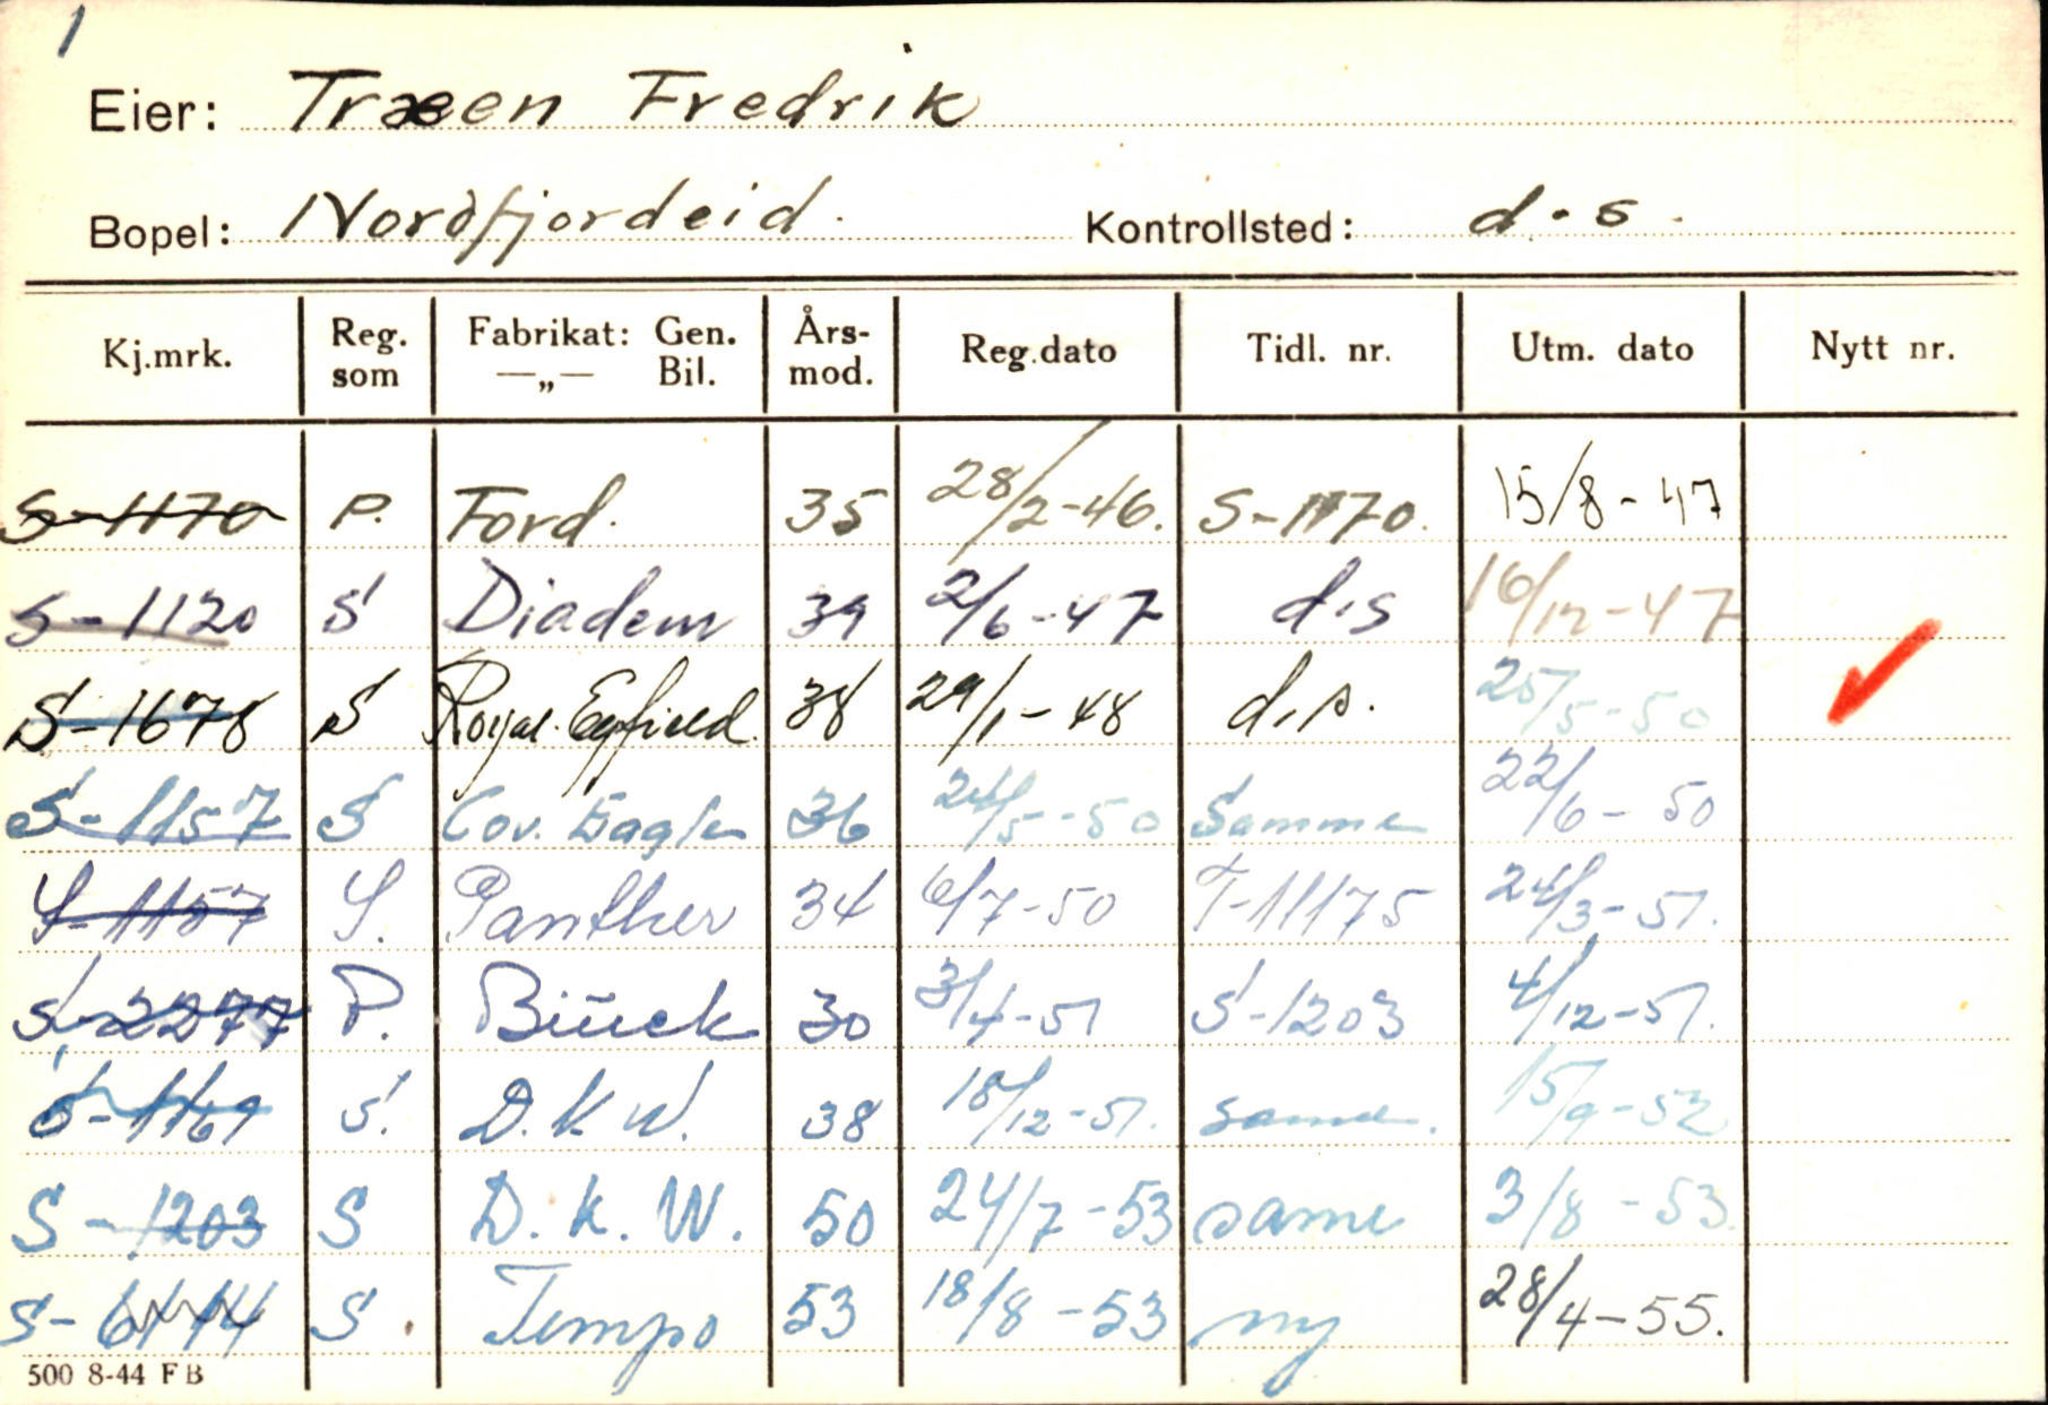 1
Eier: Træen Fredrik
Bopel: Nordfjordeid. Kontrollsted: d.s.
Kj.mrk. Reg. som Fabrikat: Gen. —„— Bil. Års-mod. Reg.dato Tidl. nr. Utm. dato Nytt nr.
S-1170 P. Ford. 35 28/2-46. S-1170. 15/8-47
S-1120 S Diadem 39 2/6-47 d.s 16/12-47
S-1678 S Royal. Enfield. 38 29/1-48 d.s. 25/5-50
S-1157 S Cov. Eagle 36 24/5-50 Samme 22/6-50
S-1157 S. Panther 34 6/7-50 T-11175 24/3-51.
S-2277 P. Buick 30 3/4-51 S-1203 4/12-51.
S-1169 S. D.K.W. 38 18/12-51. same. 15/9-52
S-1203 S D.K.W. 50 24/7-53 same 3/8-53.
S-6114 S. Tempo 53 18/8-53 ny 28/4-55.
500 8-44 FB